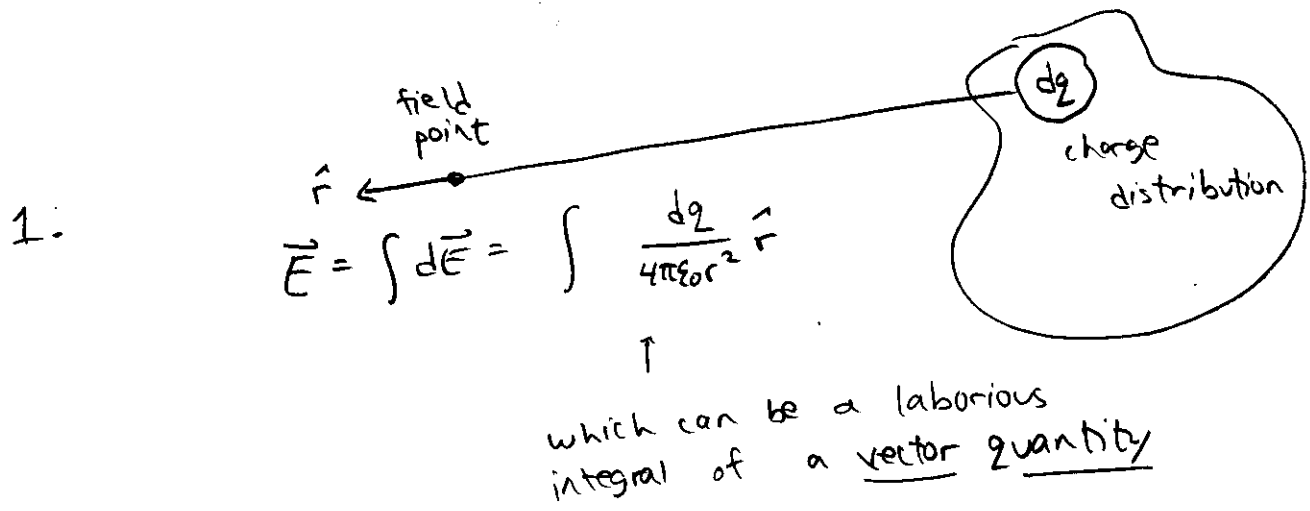 dq
field
point
charge
distribution
r̂
1.
E⃗ = ∫ dE⃗ = ∫ dq/(4πε₀r²) r̂
↑
which can be a laborious
integral of a vector quantity